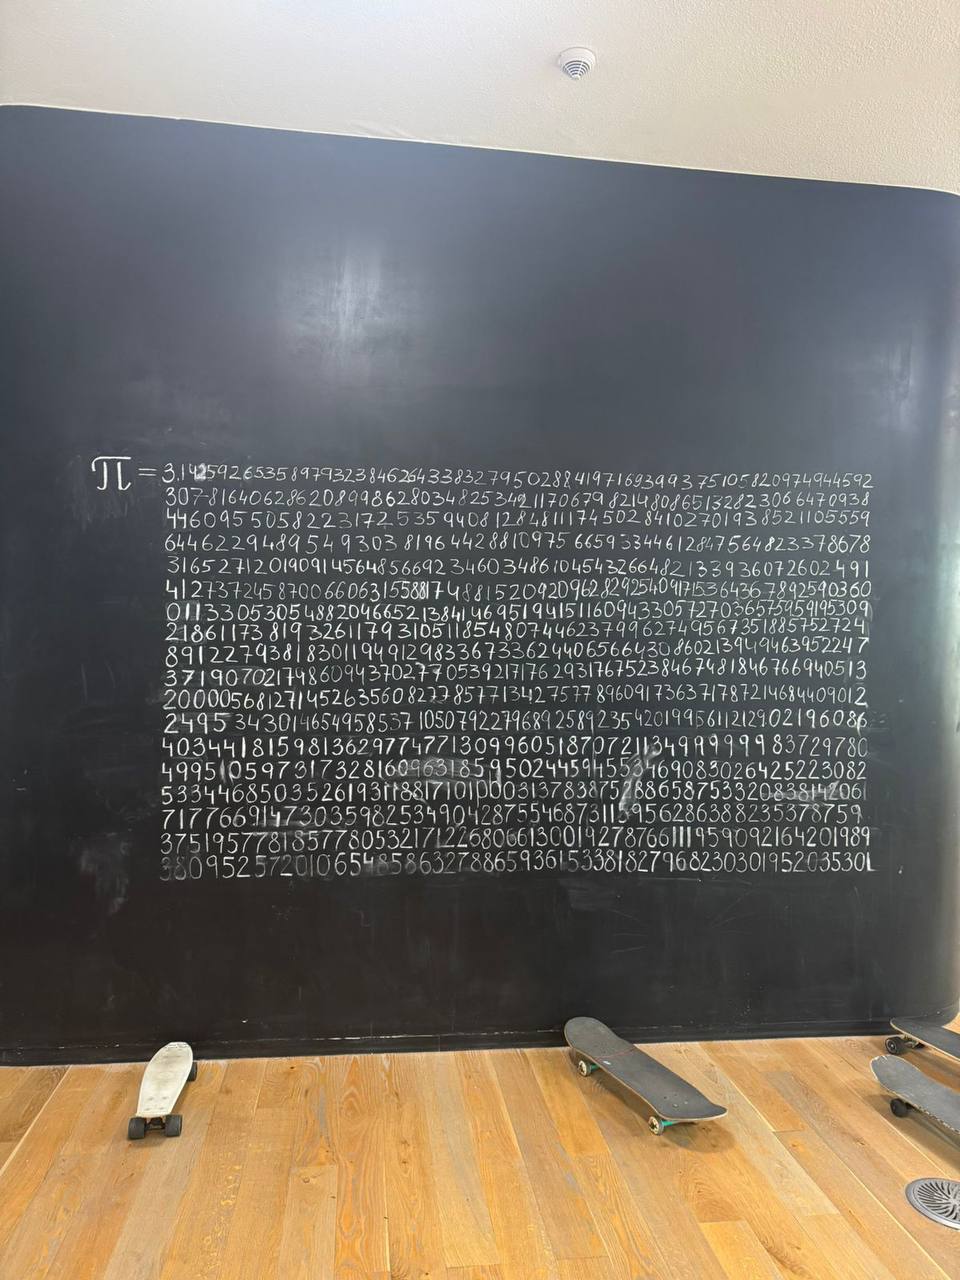 π = 3.142592653589793238462643383279502884197169399375105820974944592
307816406286208998628034825342117067982148086513282306647093​8
4460955058223172535940812848111745028410270193852110555​9
64462294895493038196442881097566593344612847564823378678
316527120190914564856692346034861045432664821339360726024​91
412737245870066063155881748815209209628292540917153643678925903​60
01133053054882046652138414695194151160943305727036575959195309
21861173819326117931051185480744623799627495673518857527​24
8912279381830119491298336733624406566430860213949463952247
3719070217986094370277053921717629317675238467481846766940513
20000568127145263560827785771342757789609173637178721468440901​2
24953430146549585371050792279689258923542019956112129021960​86
403441815981362977477130996051870721134999999837297​80
4995105973173281609631859502445945534690830264252230​82
533446850352619311881710100031378387528865875332083814​2061
71776691473035982534904287554687311595628638823537875​9
37519577818577805321712268066130019278766111959092164201989
38095257201065485863278865936153381827968230301952035301